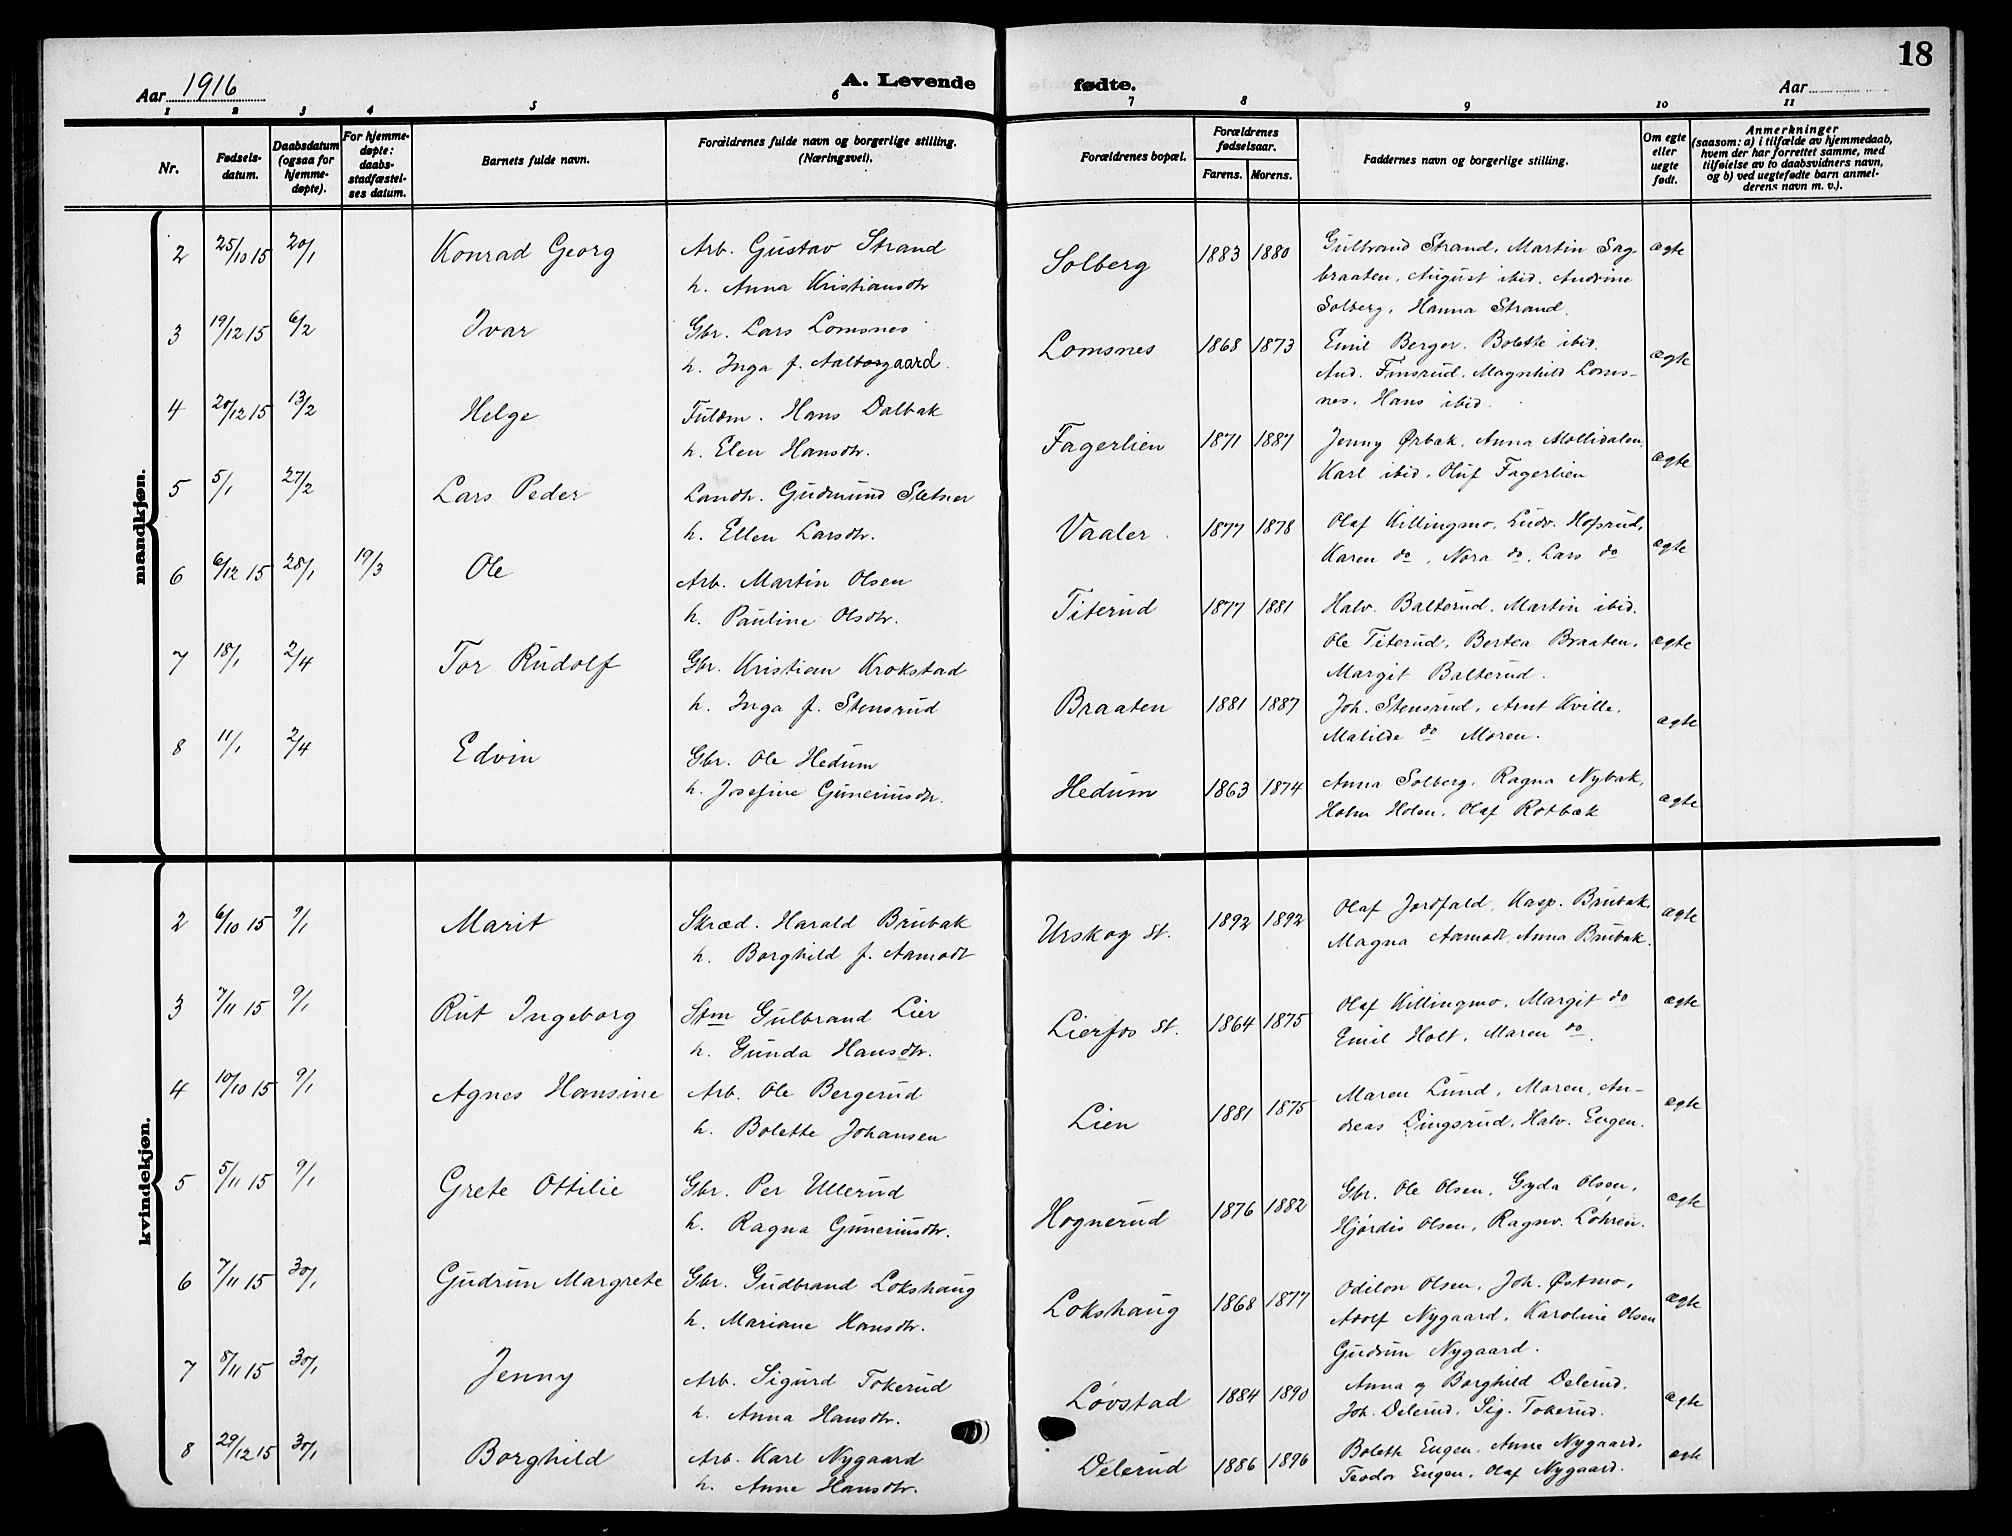 18
Aar 1916
A. Levende fødte.
Aar
1 2 3 4 5 6 7 8 9 10 11
Nr.
Fødsels-
datum.
Daabsdatum
(ogsaa for
hjemme-
døpte).
For hjemme-
døpte:
daabs-
stadfæstel-
ses datum.
Barnets fulde navn.
Forældrenes fulde navn og borgerlige stilling.
(Næringsvei).
Forældrenes bopæl.
Forældrenes
fødselsaar.
Farens. Morens.
Faddernes navn og borgerlige stilling.
Om egte
eller
uegte
født.
Anmerkninger
(saasom: a) i tilfælde av hjemmedaab,
hvem der har forrettet samme, med
tilføielse av to daabsvidners navn,
og b) ved uegtefødte barn anmel-
derens navn m. v.).
mandkjøn.
2 25/10 15 20/1 Konrad Georg Arb. Gustav Strand Solberg 1883 1880 Gulbrand Strand, Martin Sag- ægte
h. Anna Kristiansdtr braaten, August ibid, Andrine
Solberg, Hanna Strand.
3 19/12 15 6/2 Ivar Gbr. Lars Lomsnes Lomsnes 1868 1873 Emil Berger, Bolette ibid. ægte
h. Inga f. Aaltorgaard. And. Finsrud, Magnhild Loms-
nes, Hans ibid.
4 20/12 15 13/2 Helge Fuldm. Hans Dalbak Fagerlien 1871 1887 Jenny Ørbak, Anna Mollidalen, ægte
h. Elen Hansdtr. Karl ibid, Oluf Fagerlien
5 5/1 27/2 Lars Peder Landh. Gudmund Sletner Vaaler. 1877 1878 Olaf Killingmo, Ludv. Hofsrud, ægte
h. Ellen Larsdtr. Karen do, Nora do, Lars do
6 6/12 15 28/1 19/3 Ole Arb. Martin Olsen Titerud 1877 1881 Halv. Balterud, Martin ibid. ægte
h. Pauline Olsdtr. Ole Titerud, Bertea Braaten,
Margit Balterud.
7 18/1 2/4 Tor Rudolf Gbr. Kristian Krokstad Braaten 1881 1887 Joh. Stensrud, Arnt Kville, ægte
h. Inga f. Stensrud Matilde do Moren.
8 11/1 2/4 Edvin Gbr. Ole Hedum Hedum 1863 1874 Anna Solberg, Ragna Nybak, ægte
h. Josefine Guneriusdtr. Holm Holen, Olaf Rotbæk
kvindekjøn.
2 6/10 15 9/1 Marit Skræd. Harald Brubak Urskog st. 1892 1892 Olaf Jordfald, Kasp. Brubak, ægte
h. Borghild f. Aamodt Magna Aamodt, Anna Brubak.
3 7/11 15 9/1 Rut Ingeborg Stm Gulbrand Lier Lierfos st. 1864 1875 Olaf Killingmo, Margit do ægte
h. Gunda Hansdtr. Emil Holt, Maren do.
4 10/10 15 9/1 Agnes Hansine Arb. Ole Bergerud Lien 1881 1875 Maren Lund, Moren, An- ægte
h. Bolette Johansen dreas Dingsrud, Halv. Eugen.
5 5/11 15 9/1 Grete Ottilie Gbr. Per Ullerud Hognerud 1876 1882 Gbr. Ole Olsen, Gyda Olsen, ægte
h. Ragna Guneriusdtr. Hjørdis Olsen, Ragnv. Løhren.
6 7/11 15 30/1 Gudrun Margrete Gbr. Gudbrand Lokshaug Lokshaug 1868 1877 Odilon Olsen, Joh. Østmo, ægte
h. Mariane Hansdtr. Adolf Nygaard, Karoline Olsen
Gudrun Nygaard.
7 8/11 15 30/1 Jenny Arb. Sigurd Tokerud Løvstad 1884 1890 Anna og Borghild Delerud, ægte
h. Anna Hansdtr. Joh. Delerud, Sig. Tokerud.
8 29/12 15 30/1 Borghild Arb. Karl Nygaard Delerud 1886 1896 Bolette Eugen, Anne Nygaard, ægte
h. Anne Hansdtr. Teodor Eugen, Olaf Nygaard.